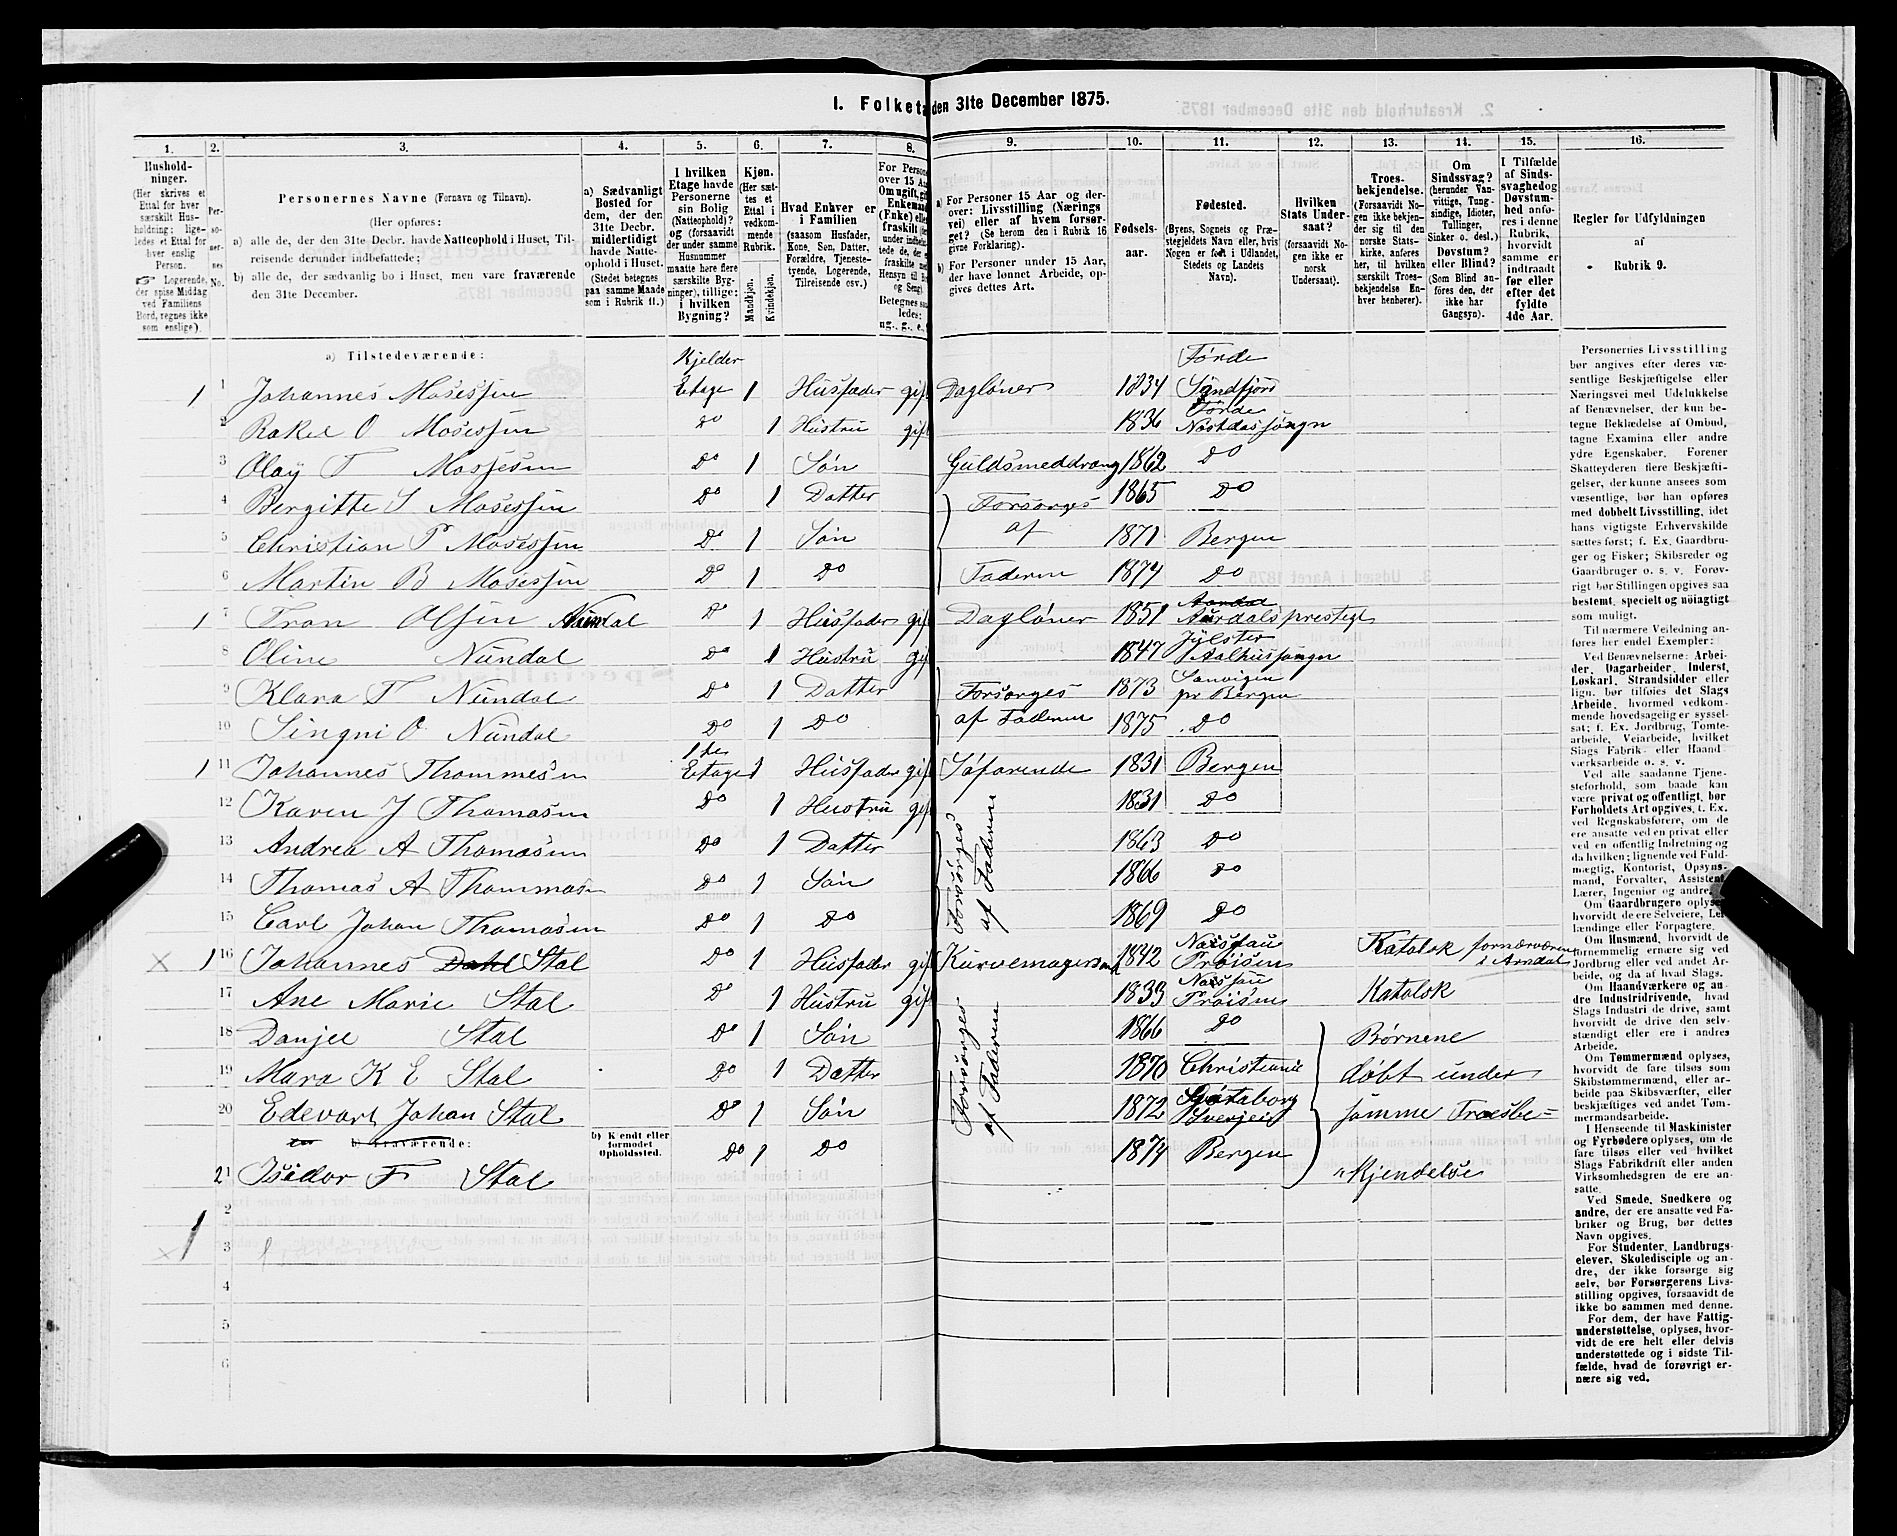 1. Folketæ
den 31te December 1875.
1. 2. 3. 4. 5. 6. 7. 8. 9. 10. 11. 12. 13. 14. 15. 16.
Hushold-
ninger.
(Her skrives et
Ettal for hver
særskilt Hus-
holdning: lige-
ledes et Ettal for
hver enslig
Person.
Logerende,
der spise Middag
ved Familiens
Bord, regnes ikke
som enslige).
Per-
so-
ner-
nes
No.
Personernes Navne (Fornavn og Tilnavn).
(Her opføres:
a) alle de, der den 31te Decbr. havde Natteophold i Huset, Til-
reisende derunder indbefattede;
b) alle de, der sædvanlig bo i Huset, men vare fraværende
den 31te December.
a) Sædvanligt
Bosted for
dem, der den
31te Decbr.
midlertidigt
havde Natte-
ophold i Huset.
(Stedet betegnes
paa samme Maade
som i Rubrik 11.)
I hvilken
Etage havde
Personerne
sin Bolig
(Natteophold)?
og (forsaavidt
der under samme
Husnummer
maatte høre flere
særskilte Byg-
ninger), tillige:
i hvilken
Bygning?
Kjøn.
(Her sæt-
tes et
Ettal i
vedkom-
mende
Rubrik.
Mandkjøn.
Kvindekjøn.
Hvad Enhver er
i Familien
(saasom Husfader,
Kone, Søn, Datter,
Forældre, Tjeneste-
tyende, Logerende,
Tilreisende osv.)
For Person
over 15 Aa
Om ugift, gi
Enkeman
(Enke) elle
fraskilt
Betegnes saa
ledes:
ug., g., e.,
a) For Personer 15 Aar og der-
over: Livsstilling (Nærings
vei) eller af hvem forsør-
get? (Se herom den i Rubrik 16
givne Forklaring).
b) For Personer under 15 Aar,
der have lønnet Arbeide, op-
gives dettes Art.
Fødsels-
aar.
Fødested.
(Byens, Sognets og Præ-
stegjeldets Navn eller, hvis
Nogen er født i Udlandet,
Stedets og Landets
Navn).
Hvilken
Stats Under-
saat?
(forsaavidt No-
gen ikke er
norsk
Undersaat).
Troes-
bekjendelse.
(Forsaavidt No-
gen ikke bekjen-
der sig til den
norske Stats-
kirke, anføres
her, til hvilken
særskilt Troes-
bekjendelse En-
hver henhører).
Om
Sindssvag?
(herunder Van-
vittige, Tung-
sindige, Idioter,
Tullinger,
Sinker o. desl.)
Døvstum?
eller Blind?
(Som Blind an-
føres den, der
ikke har
Gangsyn).
I Tilfælde
af Sinds-
svaghed og
Døvstum-
hed anfø-
res i denne
Rubrik,
hvorvidt
samme er
indtraadt
før eller
efter det
fyldte
4de Aar.
Regler for Udfyldningen
af
Rubrik 9.
a) Tilstedeværende:
1 1 Johannes Mosessen Kjelder Etage 1 Husfader gift Dagløner 1834 Førde Søndfjord
2 Rakel O Mosessen Do 1 Hustru gift 1836 Førde
3 Olay T Mossesen Do 1 Søn Guldsmeddreng 1862 Do
4 Bergitte S Mosessen Do 1 Datter Forsørges 1865 Do
5 Christian P Mosessen Do 1 Søn af 1871 Bergen
6 Martin B Mosessen Do 1 Do Faderen 1874 Do
1 7 Tron Olsen Nundal Do 1 Husfader gift Dagløner 1851 Aardal Aurdalsprestegj
8 Oline Nundal Do 1 Hustru gif 1847 Jølster Aalhussongn
9 Klara T Nundal Do 1 Datter Forsørges 1873 Sanvigen pr Bergen
10 Singni O Nundal Do 1 Do af Faderen 1875 Do
1 11 Johannes Thommesen 1te Etage 1 Husfader gift Søfarende 1831 Bergen
12 Karen J Thomasen Do 1 Hustru gift 1831 Do
13 Andrea A Thomasen Do 1 Datter Forsørges af Faderen 1863 Do
14 Thomas A Thommasn Do 1 Søn 1866 Do
15 Carl Johan Thomasen Do 1 Do 1869 Do
1 16 Johannes Dahl Stal Do 1 Husfader gift Kurvemager 1842 Nassau Prøisen Katolok fornærværene i Arndal
17 Ane Marie Stal Do 1 Hustru gift 1833 Nassau Prøisen Katolok
18 Danjel Stal Do 1 Søn Forsørges af Faderen 1866 Do Børnene
19 Mara K E Stal Do 1 Datter 1870 Christiania døbt under
20 Edevart Johan Stal Do 1 Søn 1872 Gøtaborg Sverjeig samme Troesbe=
b) Fraværende:
b) Kendt eller
formodet
Opholdssted.
21 Isidor F Stal Do 1 Do 1874 Bergen kjendelse
2
1 3
4
5
6
Personernes Livsstilling
bør angives efter deres væ-
sentlige Beskjæftigelse eller
Næringsvei med Udelukkelse
af Benævnelser, der kun be-
tegne Beklædelse af Ombud,
tagne Examina eller andre
ydre Egenskaber. Forener
Skatteyderen flere Beskjæfti-
gelser, der kunne ansees som
væsentlige, bør han opføres
med dobbelt Livsstilling, idet
hans vigtigste Erhvervskilde
sættes først; f. Ex. Gaardbru-
ger og Fisker; Skibsreder og
Gaardbruger o. s. v. Forøv-
rigt bør Stillingen opgives saa
bestemt, specielt og nøiagtigt
som muligt.
Til nærmere Veiledning an-
føres her endel Exempler:
Ved Benævnelserne: Arbei-
der, Dagarbeider, Inderst,
Løskarl, Strandsidder eller
lign. bør tilføies det Slags
Arbeide, hvormed vedkom-
mende hovedsagelig er syssel-
sat; f. Ex. Jordbrug, Tomte-
arbeide, Veiarbeide, hvilket
Slags Fabrik- eller Haand-
værksarbeide o. s. v.
Ved alle saadanne Tjene-
steforhold, som baade kan
være privat og offentligt, bør
Forholdets Art opgives, t. Ex.
ved Regnskabsførere, om de
ere ansatte ved en privat eller
ved en offentlig Indretning og
da hvilken; lignende ved Fuld-
mægtig, Kontorist, Opsyns-
mand, Forvalter, Assistent,
Lærer, Ingeniør og andre.
Om Gaardbrugere oplyses,
hvorvidt de ere Selveiere, Lei-
lændinge eller Forpagtere.
Om Husmænd, hvorvidt de
fornemmelig ernære sig ved
Jordbrug eller ved andet Ar-
beide, og da af hvad Slags.
Om Haandværkere og an-
dre Industridrivende, hvad
Slags Industri de drive, samt
hvorvidt de drive den selv-
stændigt eller ere i andres
Arbeide.
Om Tømmermænd oplyses,
hvorvidt de fare tilsøs som
Skibstømmermænd, eller ar-
beide paa Skibsværfter, eller
beskjæftiges ved andet Tøm-
mermandsarbeide.
I Henseende til Maskinister
og Fyrbødere oplyses, om de
fare tilsøs eller ved hvilket
Slags Fabrikdrift eller anden
Virksomhedsgren de ere an-
satte.
Ved Smede, Snedkere og
andre, der ere ansatte ved Fa-
briker og Brug, bør dettes
Navn opgives.
For Studenter, Landbrugs-
elever, Skoledisciple og an-
dre, der ikke forsørge sig
selv, bør Forsørgerens Livs-
stilling opgives, forsaavidt de
ikke bo sammen med denne.
For dem, der have Fattig-
understøttelse, oplyses, hvor-
vidt de ere helt eller delvis
understøttede og i sidste Til-
fælde, hvad de forøvrigt er-
nære sig ved.